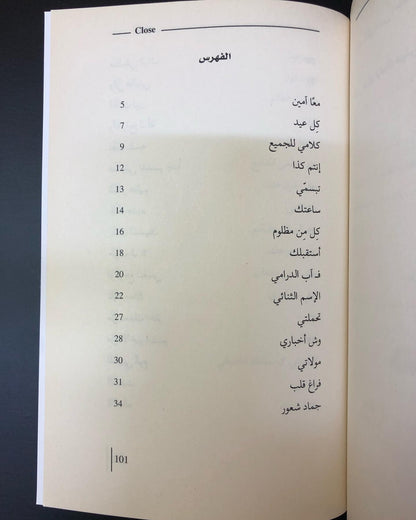 Close
الفهرس
معًا آمين 5
كل عيد 7
كلامي للجميع 9
إنتم كذا 12
تبسمّي 13
ساعتك 14
كل مِن مظلوم 16
أستقبلك 18
فـ آب الدرامي 20
الإسم الثنائي 22
تحملتي 27
وش أخباري 28
مولاتي 30
فراغ قلب 31
جماد شعور 34
101